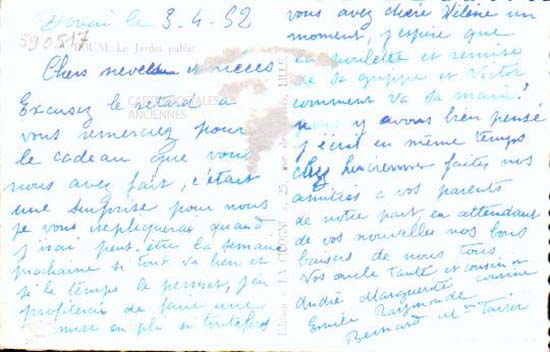 Douai le 3-4-52
590517
DOUAI. Le Jardin public
Chers neveux et nièces
CARTES POSTALES
ANCIENNES
Excusez le retard a
vous remerciez pour
le cadeau que vous
nous avez fait, c'était
une surprise pour nous
je vous expliquerai quand
j'irai peut-être la semaine
prochaine si tout va bien et
si le temps le permet, j'en
profiterai de faire une
mise en pli si toutefois
vous avez chère Hélène un
moment, j'espère que
la poulette est remise
de sa grippe et Victor
comment va sa main?
nous y avons bien pensé
j'écrit en même temps
chez Lucienne faites nos
amitiés a vos parents
de notre part en attendant
de vos nouvelles nos bons
baisers de nous tous
Vos oncle tante et cousin
André Marguerite cousine
Emile Raymonde
Bernard
25, rue
LILLE